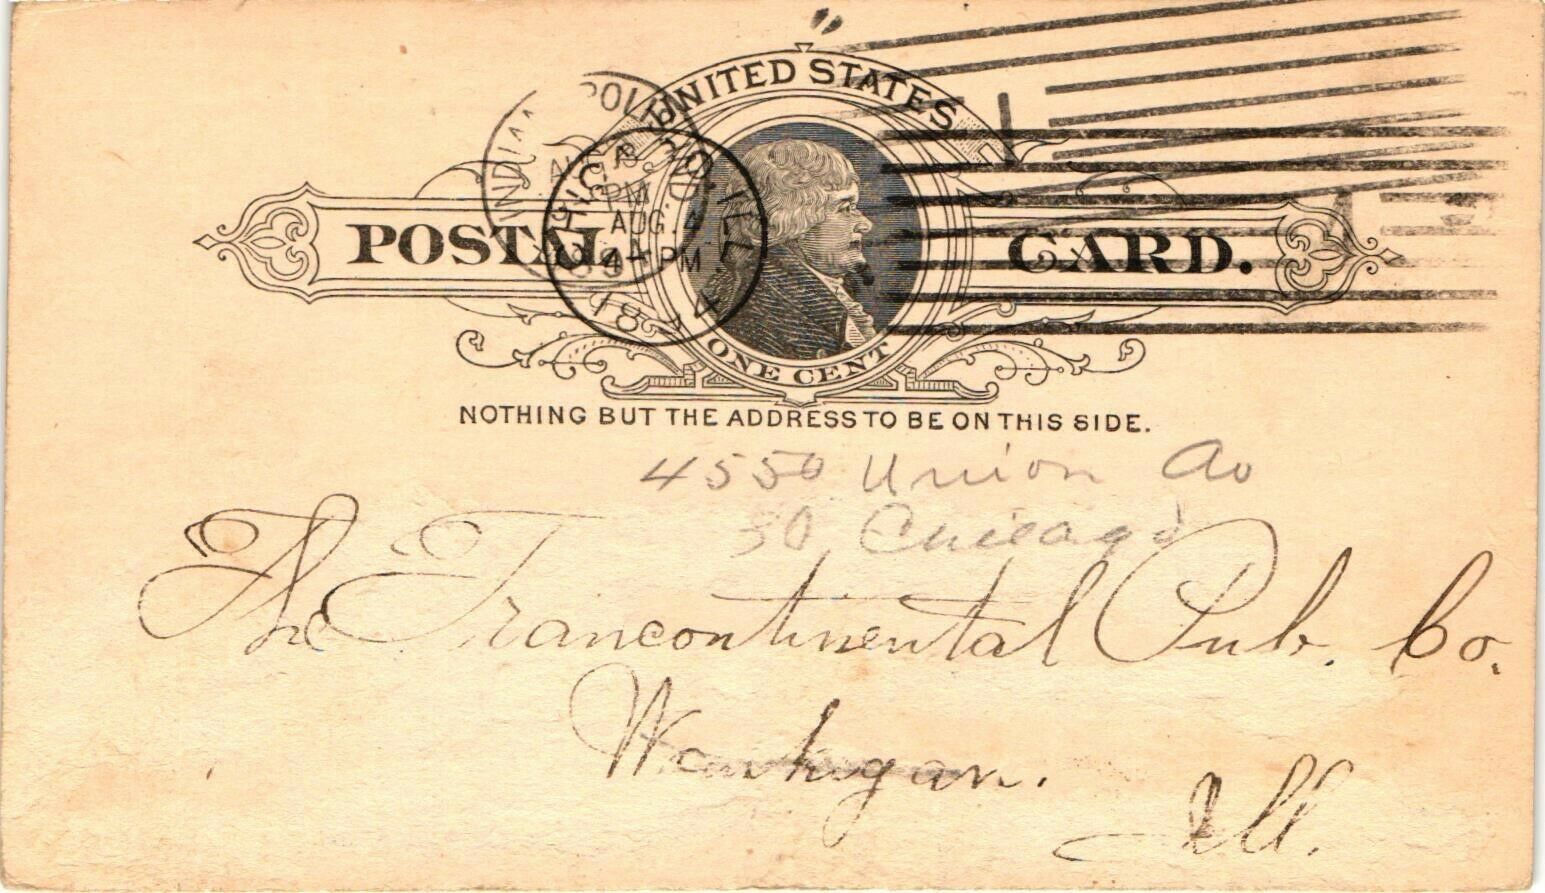 UNITED STATES
POSTAL CARD.
ONE CENT
CHICAGO, ILL.
AUG. 4
4- PM
NOTHING BUT THE ADDRESS TO BE ON THIS SIDE.
4550 Union Av
So Chicago
The Trancontinental Pub. Co.
Waukegan.
Ill.